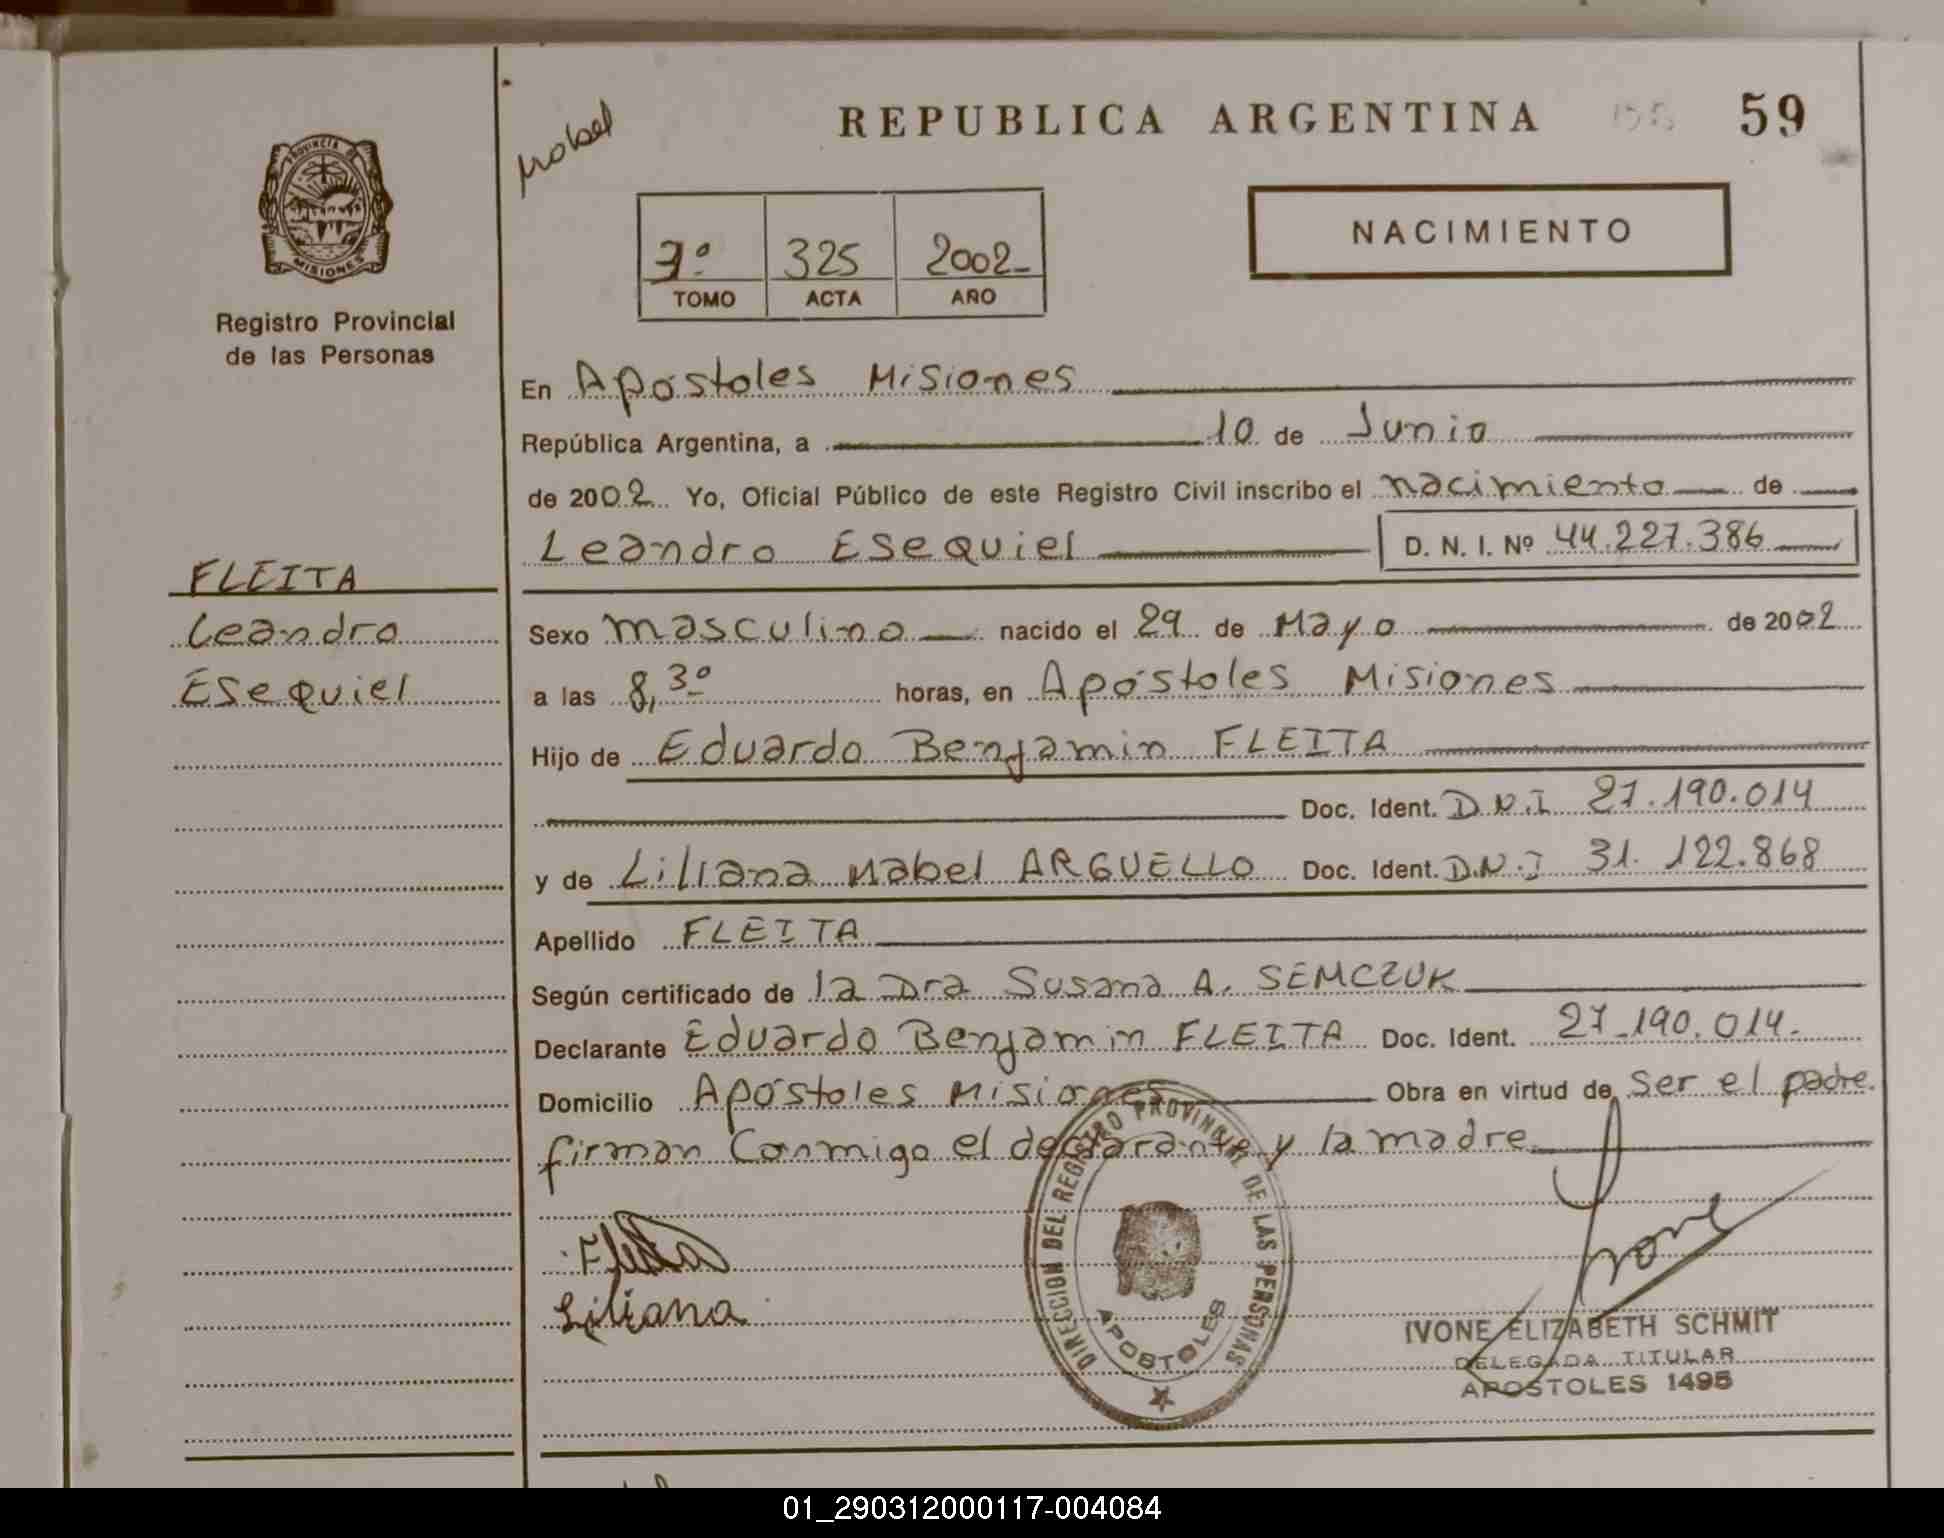 REPUBLICA ARGENTINA 59
PROVINCIA DE
MISIONES
Registro Provincial
de las Personas
NACIMIENTO
3º 325 2002
TOMO ACTA AÑO
En Apóstoles Misiones
República Argentina, a 10 de Junio
de 2002 Yo, Oficial Público de este Registro Civil inscribo el nacimiento de
Leandro Esequiel D. N. I. Nº 44.227.386
FLEITA
Leandro
Esequiel
Sexo masculino nacido el 29 de Mayo de 2002
a las 8,30 horas, en Apóstoles Misiones
Hijo de Eduardo Benjamin FLEITA
Doc. Ident. D.N.I 27.190.014
y de Liliana Mabel ARGUELLO Doc. Ident. D.N.I 31.122.868
Apellido FLEITA
Según certificado de la Dra Susana A. SEMCZUK
Declarante Eduardo Benjamin FLEITA Doc. Ident. 27.190.014.
Domicilio Apóstoles Misiones Obra en virtud de ser el padre.
firman conmigo el declarante y la madre
Fleita
Liliana
DIRECCION DEL REGISTRO PROVINCIAL DE LAS PERSONAS
APOSTOLES
Ivone
IVONE ELIZABETH SCHMIT
DELEGADA TITULAR
APOSTOLES 1495
01_290312000117-004084